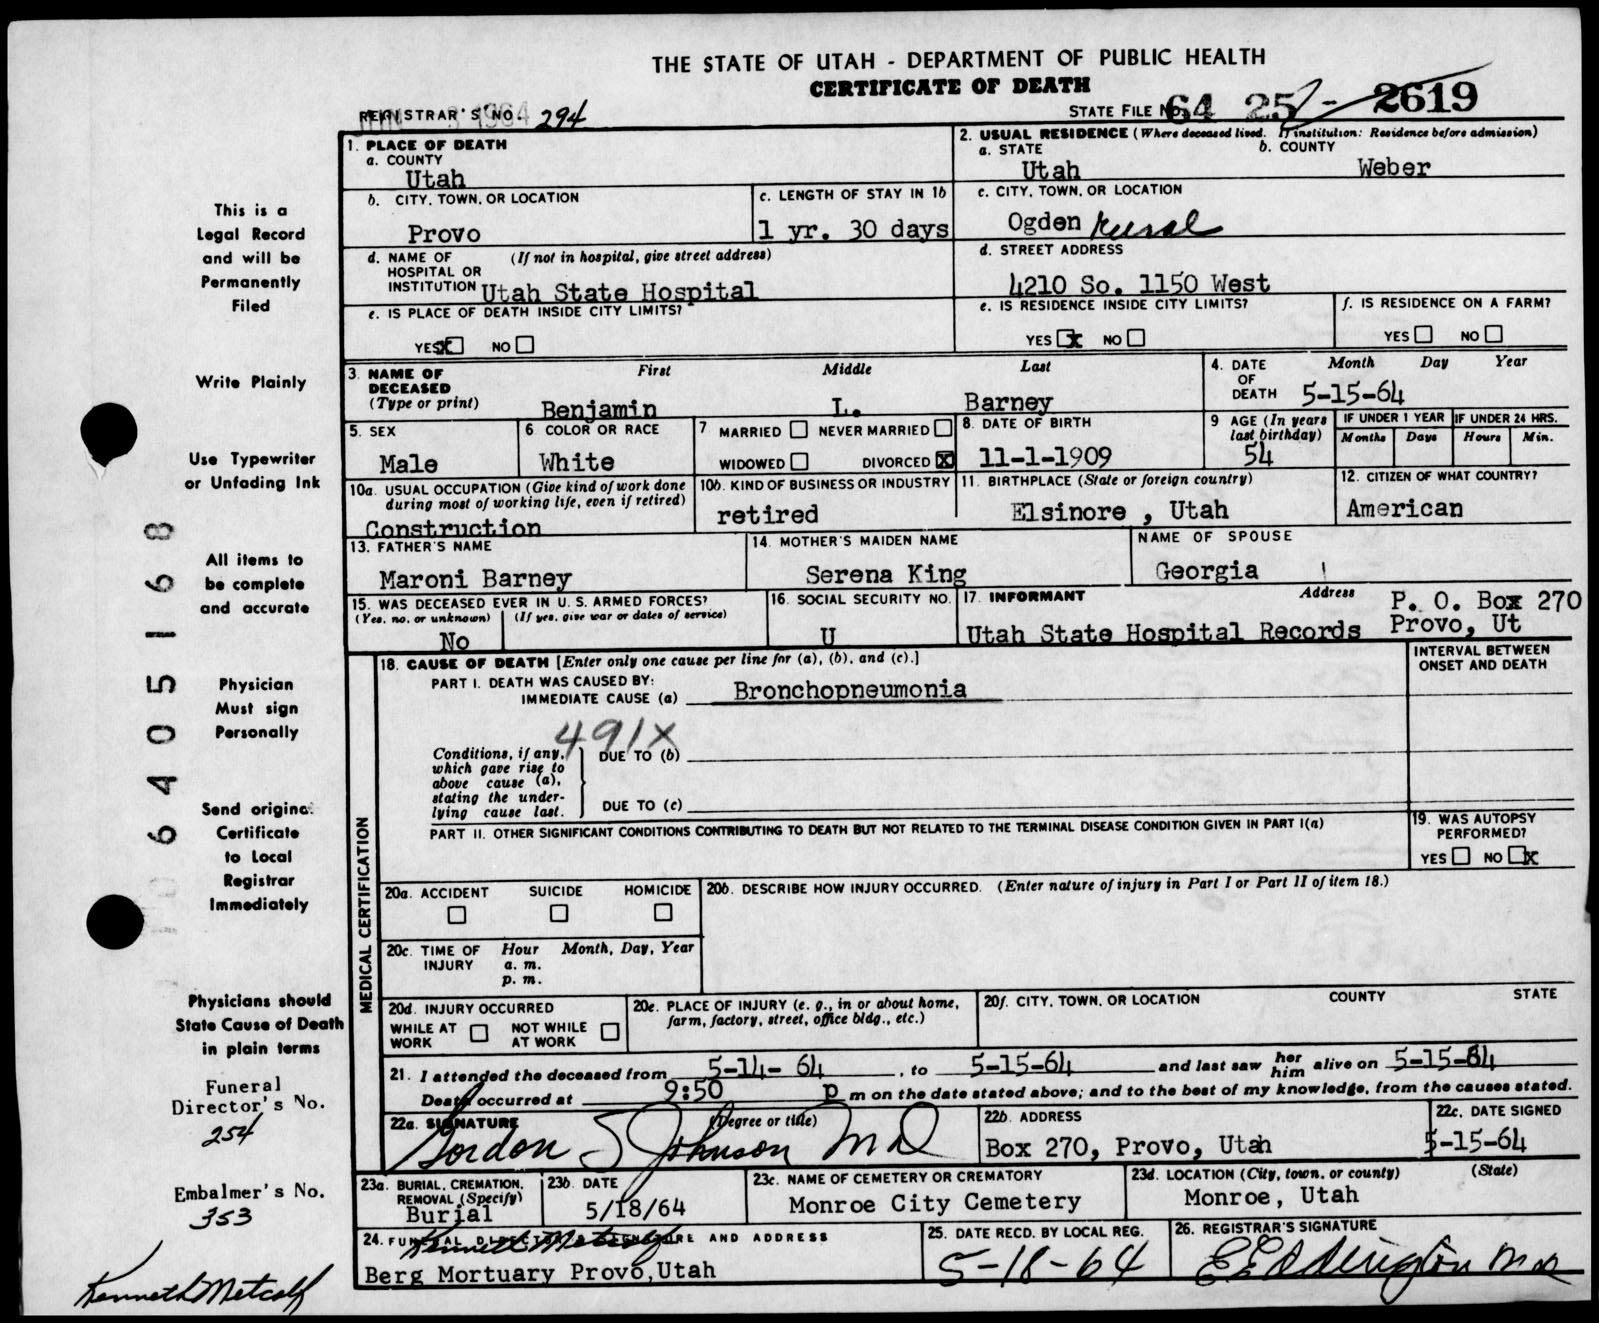 THE STATE OF UTAH - DEPARTMENT OF PUBLIC HEALTH
CERTIFICATE OF DEATH
REGISTRAR'S NO. 294
STATE FILE NO. 64 25 - 2619
1. PLACE OF DEATH
a. COUNTY
Utah
2. USUAL RESIDENCE (Where deceased lived. If institution: Residence before admission)
a. STATE b. COUNTY
Utah Weber
b. CITY, TOWN, OR LOCATION
Provo
c. LENGTH OF STAY IN 1b
1 yr. 30 days
c. CITY, TOWN, OR LOCATION
Ogden Rural
d. NAME OF HOSPITAL OR INSTITUTION (If not in hospital, give street address)
Utah State Hospital
d. STREET ADDRESS
4210 So. 1150 West
e. IS PLACE OF DEATH INSIDE CITY LIMITS?
YES X NO
e. IS RESIDENCE INSIDE CITY LIMITS?
YES X NO
f. IS RESIDENCE ON A FARM?
YES NO
3. NAME OF DECEASED (Type or print)
First Middle Last
Benjamin L. Barney
4. DATE OF DEATH Month Day Year
5-15-64
5. SEX
Male
6 COLOR OR RACE
White
7 MARRIED NEVER MARRIED
WIDOWED DIVORCED X
8. DATE OF BIRTH
11-1-1909
9 AGE (In years last birthday)
54
IF UNDER 1 YEAR IF UNDER 24 HRS.
Months Days Hours Min.
10a. USUAL OCCUPATION (Give kind of work done during most of working life, even if retired)
Construction
10b. KIND OF BUSINESS OR INDUSTRY
retired
11. BIRTHPLACE (State or foreign country)
Elsinore , Utah
12. CITIZEN OF WHAT COUNTRY?
American
13. FATHER'S NAME
Maroni Barney
14. MOTHER'S MAIDEN NAME
Serena King
NAME OF SPOUSE
Georgia
15. WAS DECEASED EVER IN U. S. ARMED FORCES?
(Yes, no, or unknown) (If yes, give war or dates of service)
No
16. SOCIAL SECURITY NO.
U
17. INFORMANT Address
Utah State Hospital Records
P. O. Box 270
Provo, Ut
MEDICAL CERTIFICATION
18. CAUSE OF DEATH [Enter only one cause per line for (a), (b), and (c).]
PART I. DEATH WAS CAUSED BY:
IMMEDIATE CAUSE (a) Bronchopneumonia
INTERVAL BETWEEN ONSET AND DEATH
491X
Conditions, if any, which gave rise to above cause (a), stating the underlying cause last.
DUE TO (b)
DUE TO (c)
PART II. OTHER SIGNIFICANT CONDITIONS CONTRIBUTING TO DEATH BUT NOT RELATED TO THE TERMINAL DISEASE CONDITION GIVEN IN PART I(a)
19. WAS AUTOPSY PERFORMED?
YES NO X
20a. ACCIDENT SUICIDE HOMICIDE
20b. DESCRIBE HOW INJURY OCCURRED. (Enter nature of injury in Part I or Part II of item 18.)
20c. TIME OF INJURY Hour Month, Day, Year
a. m.
p. m.
20d. INJURY OCCURRED
WHILE AT WORK NOT WHILE AT WORK
20e. PLACE OF INJURY (e. g., in or about home, farm, factory, street, office bldg., etc.)
20f. CITY, TOWN, OR LOCATION COUNTY STATE
21. I attended the deceased from 5-14- 64, to 5-15-64 and last saw her him alive on 5-15-64
Death occurred at 9:50 p m on the date stated above; and to the best of my knowledge, from the causes stated.
22a. SIGNATURE (Degree or title)
Gordon S Johnson MD
22b. ADDRESS
Box 270, Provo, Utah
22c. DATE SIGNED
5-15-64
23a. BURIAL, CREMATION, REMOVAL (Specify)
Burial
23b. DATE
5/18/64
23c. NAME OF CEMETERY OR CREMATORY
Monroe City Cemetery
23d. LOCATION (City, town, or county) (State)
Monroe, Utah
24. FUNERAL DIRECTOR'S SIGNATURE AND ADDRESS
Kenneth Metcalf
Berg Mortuary Provo,Utah
25. DATE RECD. BY LOCAL REG.
5-18-64
26. REGISTRAR'S SIGNATURE
This is a
Legal Record
and will be
Permanently
Filed
Write Plainly
Use Typewriter
or Unfading Ink
All items to
be complete
and accurate
Physician
Must sign
Personally
Send original
Certificate
to Local
Registrar
Immediately
Physicians should
State Cause of Death
in plain terms
Funeral
Director's No.
254
Embalmer's No.
353
Kenneth Metcalf
64 05 1 68